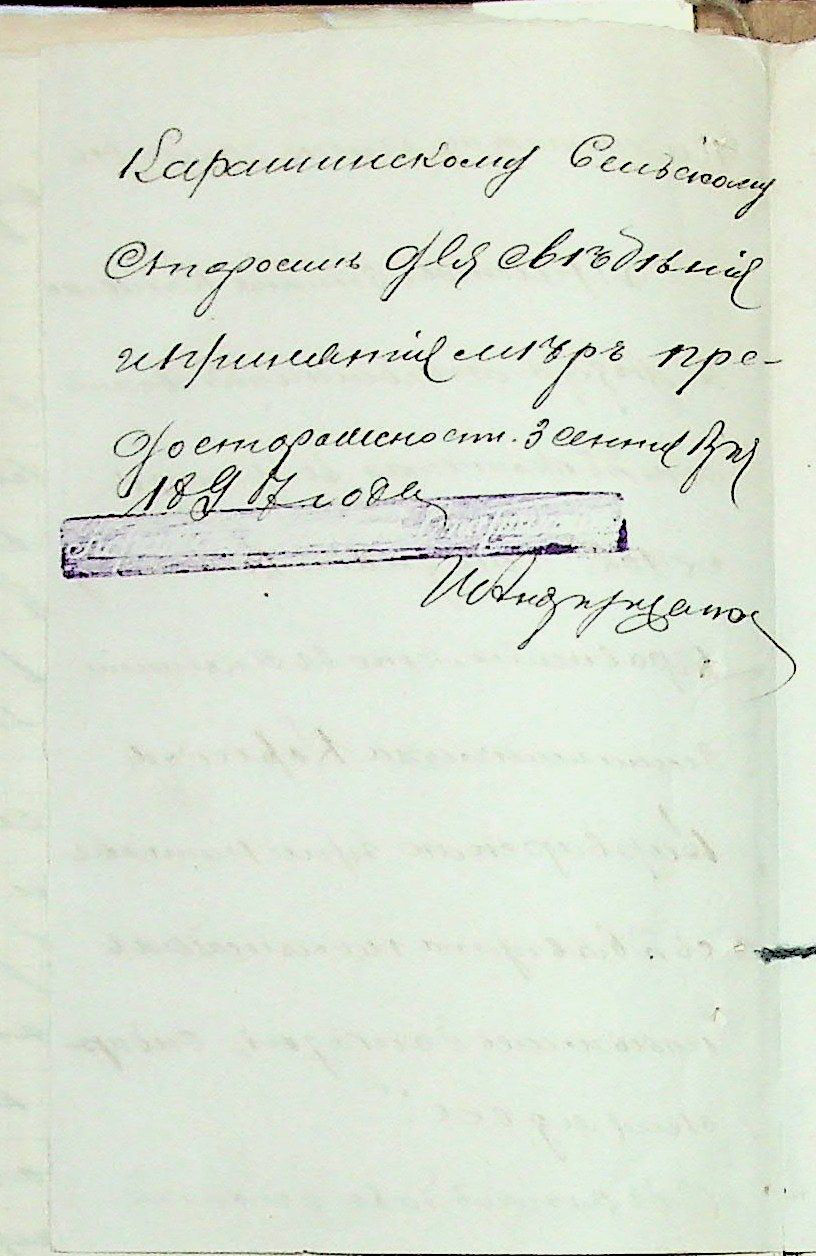 Карашинскому Сельскому
Старостѣ для свѣдѣнія
и принятія мѣръ пре-
досторожности. 3 сентября
1897 года